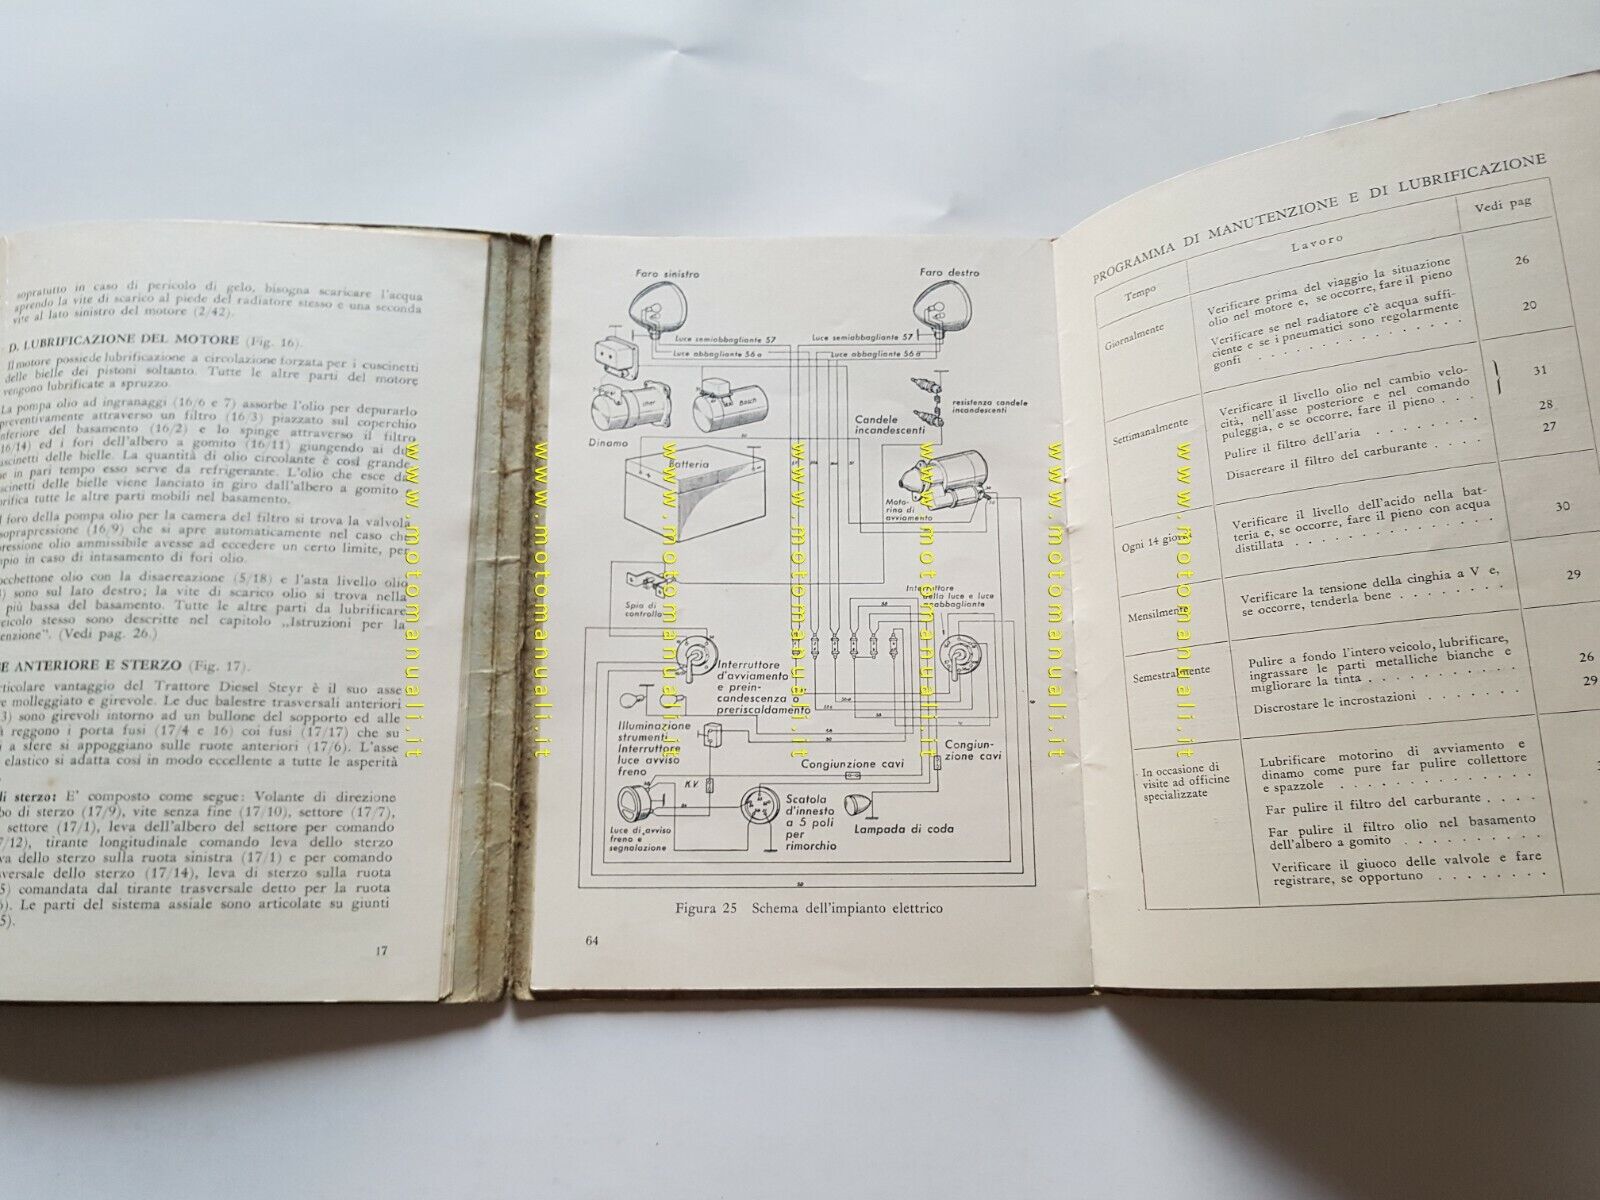 sopratutto in caso di pericolo di gelo, bisogna scaricare l'acqua
aprendo la vite di scarico al piede del radiatore stesso e una seconda
vite al lato sinistro del motore (2/42).
D. LUBRIFICAZIONE DEL MOTORE (Fig. 16).
Il motore possiede lubrificazione a circolazione forzata per i cuscinetti
delle bielle dei pistoni soltanto. Tutte le altre parti del motore
vengono lubrificate a spruzzo.
La pompa olio ad ingranaggi (16/6 e 7) assorbe l'olio per depurarlo
preventivamente attraverso un filtro (16/3) piazzato sul coperchio
inferiore del basamento (16/2) e lo spinge attraverso il filtro
16/14) ed i fori dell'albero a gomito (16/11) giungendo ai
delle bielle. La quantità di olio circolante è così grande
in pari tempo esso serve da refrigerante. L'olio che esce
delle bielle viene lanciato in giro dall'albero a gomito
tutte le altre parti mobili nel basamento.
foro della pompa olio per la camera del filtro si trova la valvola
soprapressione (16/9) che si apre automaticamente nel caso che
pressione olio ammissibile avesse ad eccedere un certo limite, per
in caso di intasamento di fori olio.
olio con la disaereazione (5/18) e l'asta livello olio
sono sul lato destro; la vite di scarico olio si trova nella
più bassa del basamento. Tutte le altre parti da lubrificare
stesso sono descritte nel capitolo „Istruzioni per la
(Vedi pag. 26.)
E ANTERIORE E STERZO (Fig. 17).
vantaggio del Trattore Diesel Steyr è il suo asse
molleggiato e girevole. Le due balestre trasversali anteriori
3) sono girevoli intorno ad un bullone del sopporto ed alle
reggono i porta fusi (17/4 e 16) coi fusi (17/17) che su
a sfere si appoggiano sulle ruote anteriori (17/6). L'asse
elastico si adatta così in modo eccellente a tutte le asperità
di sterzo: E' composto come segue: Volante di direzione
di sterzo (17/9), vite senza fine (17/10), settore (17/7),
settore (17/1), leva dell'albero del settore per comando
7/12), tirante longitudinale comando leva dello sterzo
dello sterzo sulla ruota sinistra (17/1) e per comando
dello sterzo (17/14), leva di sterzo sulla ruota
5) comandata dal tirante trasversale detto per la ruota
Le parti del sistema assiale sono articolate su giunti
5).
17
Faro sinistro
Faro destro
Luce semiabbagliante 57
Luce semiabbagliante 57
Luce abbagliante 56 a
Luce abbagliante 56 a
Bosch
Dinamo
resistenza candele
incandescenti
Candele
incandescenti
Batteria
Moto-
rino di
avviamento
Spia di
controllo
Interruttore
della luce e luce
anabbagliante
Interruttore
d'avviamento
e prein-
candescenza o
preriscaldamento
Illuminazione
strumenti
Interruttore
luce avviso
freno
K.V.
Congiunzione cavi
Congiun-
zione cavi
Luce di avviso
freno e
segnalazione
Scatola
d'innesto
a 5 poli
per
rimorchio
Lampada di coda
Figura 25 Schema dell'impianto elettrico
64
PROGRAMMA DI MANUTENZIONE E DI LUBRIFICAZIONE
Tempo
Lavoro
Vedi pag
Giornalmente
Verificare prima del viaggio la situazione
olio nel motore e, se occorre, fare il pieno
26
Verificare se nel radiatore c'è acqua suffi-
ciente e se i pneumatici sono regolarmente
gonfi
20
Settimanalmente
Verificare il livello olio nel cambio velo-
cità, nell'asse posteriore e nel comando
puleggia, e se occorre, fare il pieno . . .
31
Pulire il filtro dell'aria
28
Disaereare il filtro del carburante
27
Ogni 14 giorni
Verificare il livello dell'acido nella bat-
teria e, se occorre, fare il pieno con acqua
distillata
30
Mensilmente
Verificare la tensione della cinghia a V e,
se occorre, tenderla bene
29
Semestralmente
Pulire a fondo l'intero veicolo, lubrificare,
ingrassare le parti metalliche bianche e
migliorare la tinta
26
Discrostare le incrostazioni
29
In occasione di
visite ad officine
specializzate
Lubrificare motorino di avviamento e
dinamo come pure far pulire collettore
e spazzole
Far pulire il filtro del carburante . . . .
Far pulire il filtro olio nel basamento
dell'albero a gomito
Verificare il giuoco delle valvole e fare
registrare, se opportuno
www.motomanuali.it
www.motomanuali.it
www.motomanuali.it
www.motomanuali.it
www.motomanuali.it
www.motomanuali.it
www.motomanuali.it